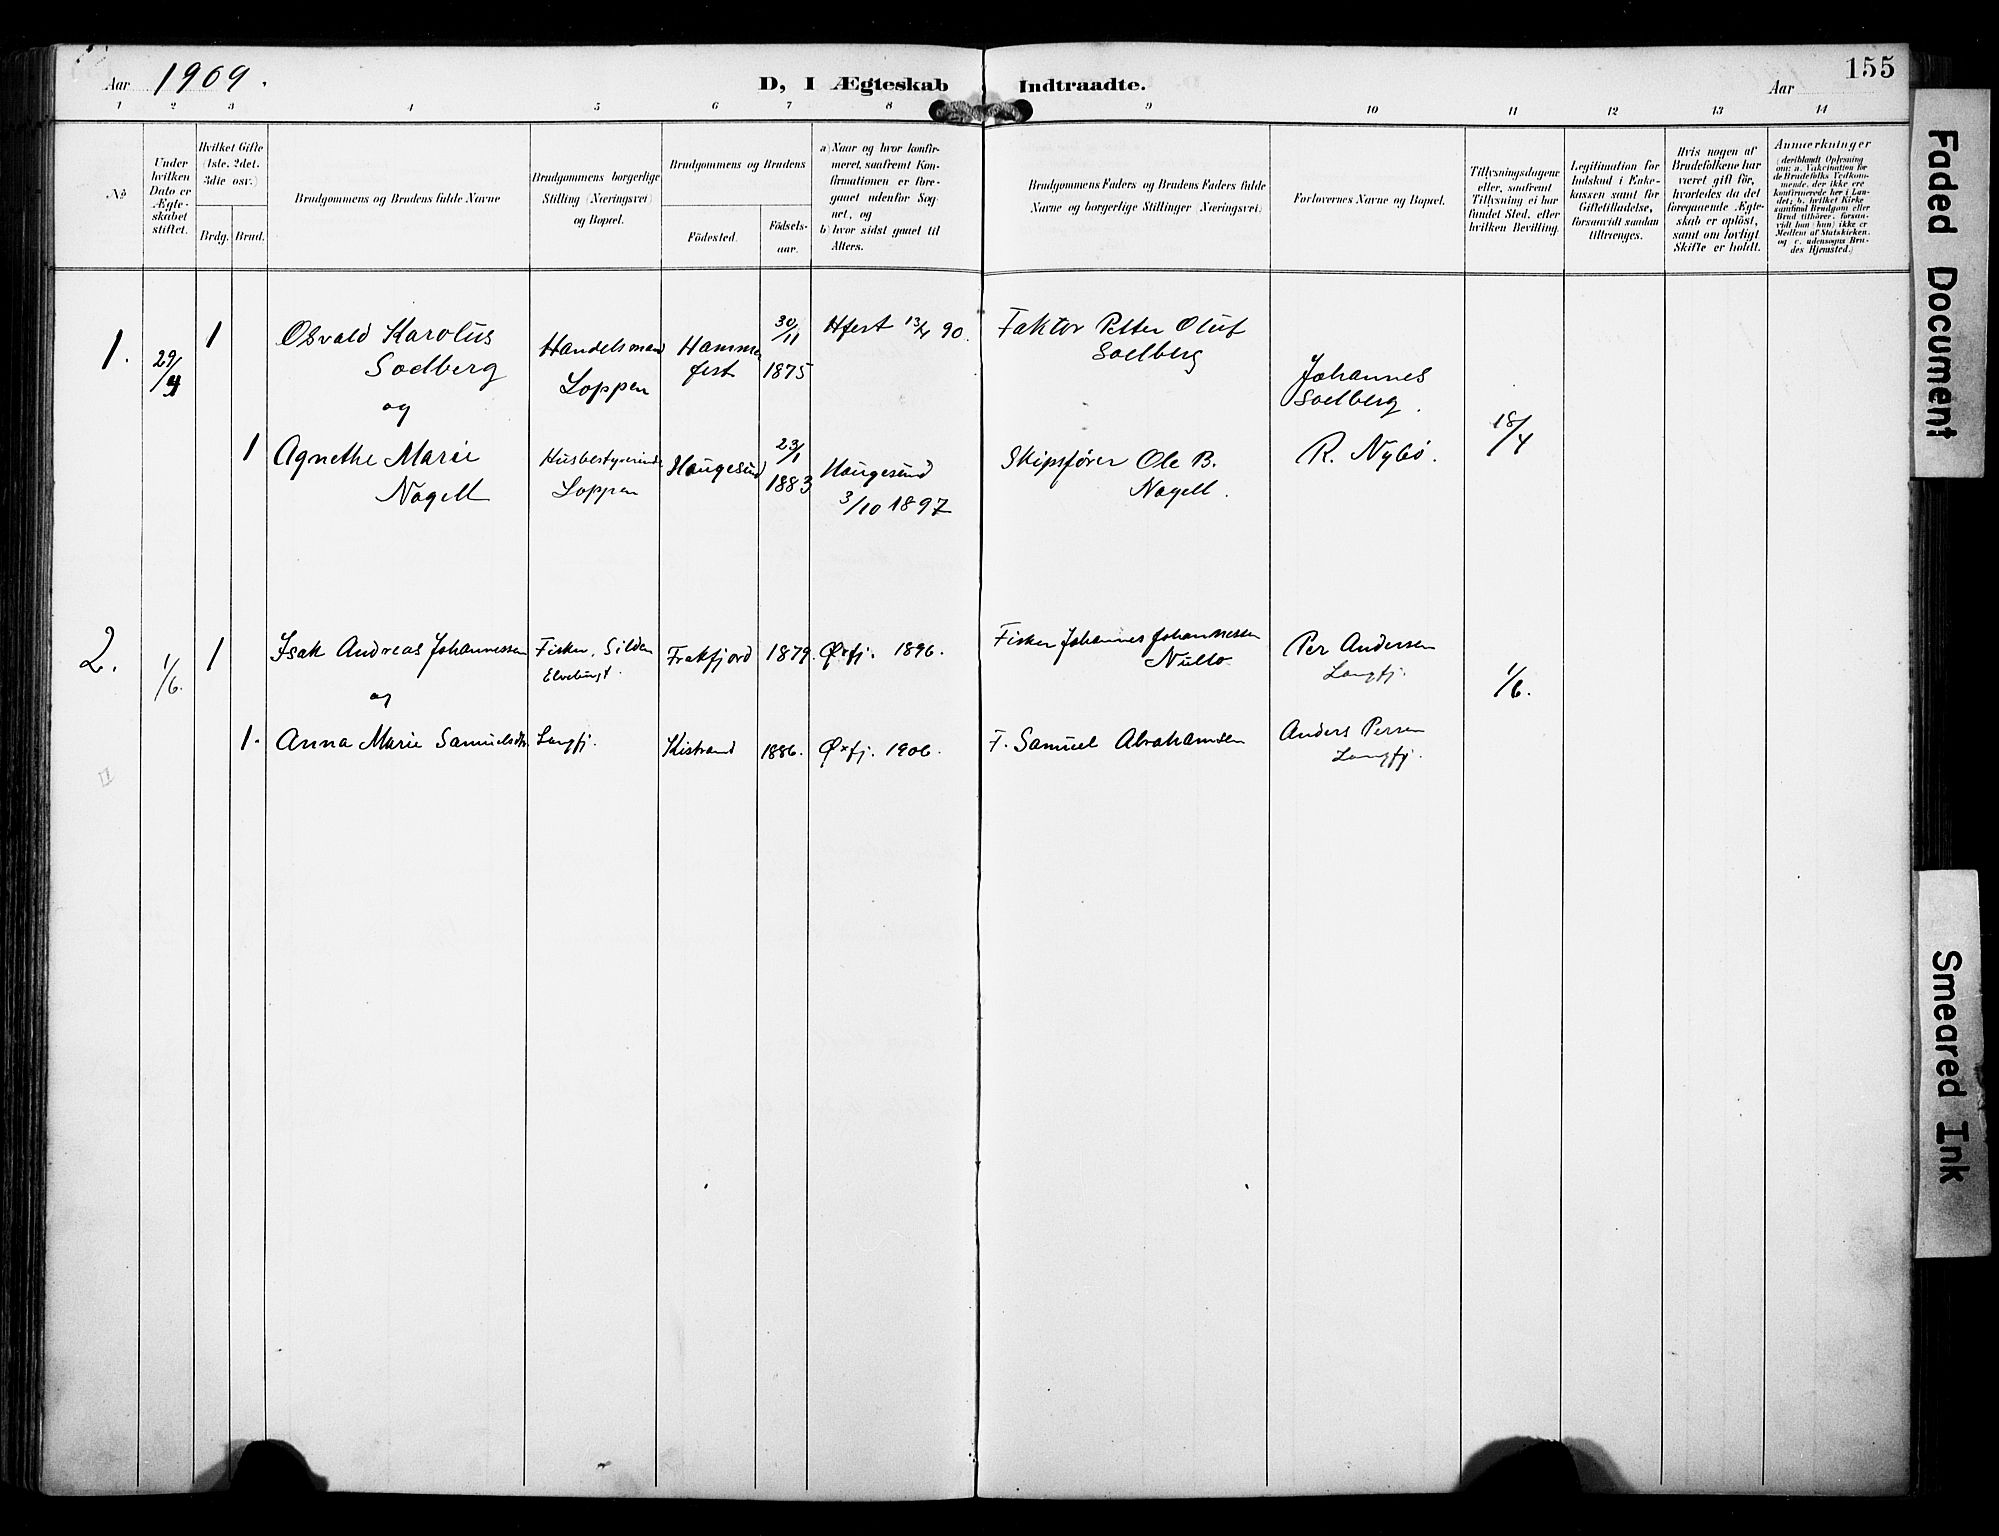 155
Aar 1909.
D, I Ægteskab Indtraadte.
Aar
1 2 3 4 5 6 7 8 9 10 11 12 13 14
No
Under hvilken Dato er Ægteskabet stiftet.
Hvilket Gifte (1ste, 2det, 3die osv.)
Brdg. Brud.
Brudgommens og Brudens fulde Navne
Brudgommens borgerlige Stilling (Næringsvei) og Bopæl.
Brudgommens og Brudens
Födested.
Födsels-aar.
a) Naar og hvor konfirmeret, saafremt Konfirmationen er foregaaet udenfor Sognet, og
b) hvor sidst gaaet til Alters.
Brudgommens Faders og Brudens Faders fulde Navne og borgerlige Stillinger (Næringsvei)
Forlovernes Navne og Bopæl.
Tillysningsdagene eller, saafremt Tillysning ei har fundet Sted, efter hvilken Bevilling.
Legitimation for Indskud i Enkekassen samt for Giftetilladelse, forsaavidt saadan tiltrænges.
Hvis nogen af Brudefolkene har været gift för, hvorledes da det foregaaende Ægteskab er oplöst, samt om lovligt Skifte er holdt.
Anmærkninger
(deriblandt Oplysning om: a. Vakcination for de Brudefolks Vedkommende, der ikke ere konfirmerede her i Landet; b. hvilket Kirkesamfund Brudgom eller Brud tilhörer, forsaavidt han (hun) ikke er Medlem af Statskirken, og c. udensogns Brudes Hjemsted.)
1. 29/4 1 Osvald Karolus Soelberg
og
Handelsmand Loppen
Hammerfest
30/11 1875
Hfest 13/4 90.
Faktor Petter Oluf Soelberg
Johannes Soelberg.
18/4
1 Agnethe Marie Nagell
Husbestyrerinde Loppen
Haugesund
23/1 1883
Haugesund 3/10 1897
Skipsfører Ole B. Nagell.
R. Nybø.
2. 1/6. 1 Isak Andreas Johannessen
og
Fisker, Silden
Frakfjord 1879. Øxfj. 1896.
Fisker Johannes Johannessen
Per Andersen Langfj.
1/6.
1. Anna Marie Samuelsdtr. Langfj.
Kistrand 1886. Øxfj. 1906.
F. Samuel Abrahamsen
Anders Persen Langfj.
Faded Document
Smeared Ink